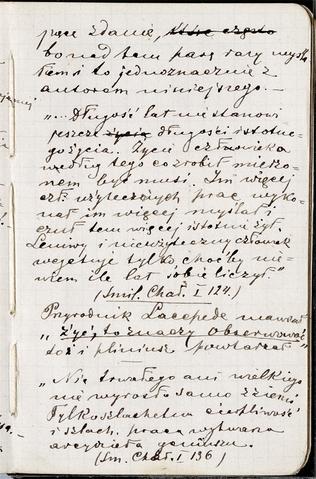 jące zdanie, które często
bo nad tem parę razy myśla
łem i to jednoznacznie z
autorem niniejszego. —
„... Długość lat nie stanowi
jeszcze życia długości istotne-
go życia. Życie człowieka
według tego co zrobił mierzo-
nem być musi. Im więcej
czł. użytecznych prac wyko-
nał im więcej myślał i
czuł tem więcej istotnie żył.
Leniwy i nieużyteczny człowiek
wegetuje tylko choćby nie-
wiem ile lat sobie liczył."
(Smil. Char. I 124.)
Przyrodnik Lacepede mawiał
„Żyć, to znaczy obserwować"
toż i pliniusz powtarzał
„Nic trwałego ani wielkiego
nie wyrosło samo z ziemi
Tylko szlachetna cierpliwość
i szlach. praca wytwarza
arcydzieła geniuszu.
(Sm. Char. I 136)